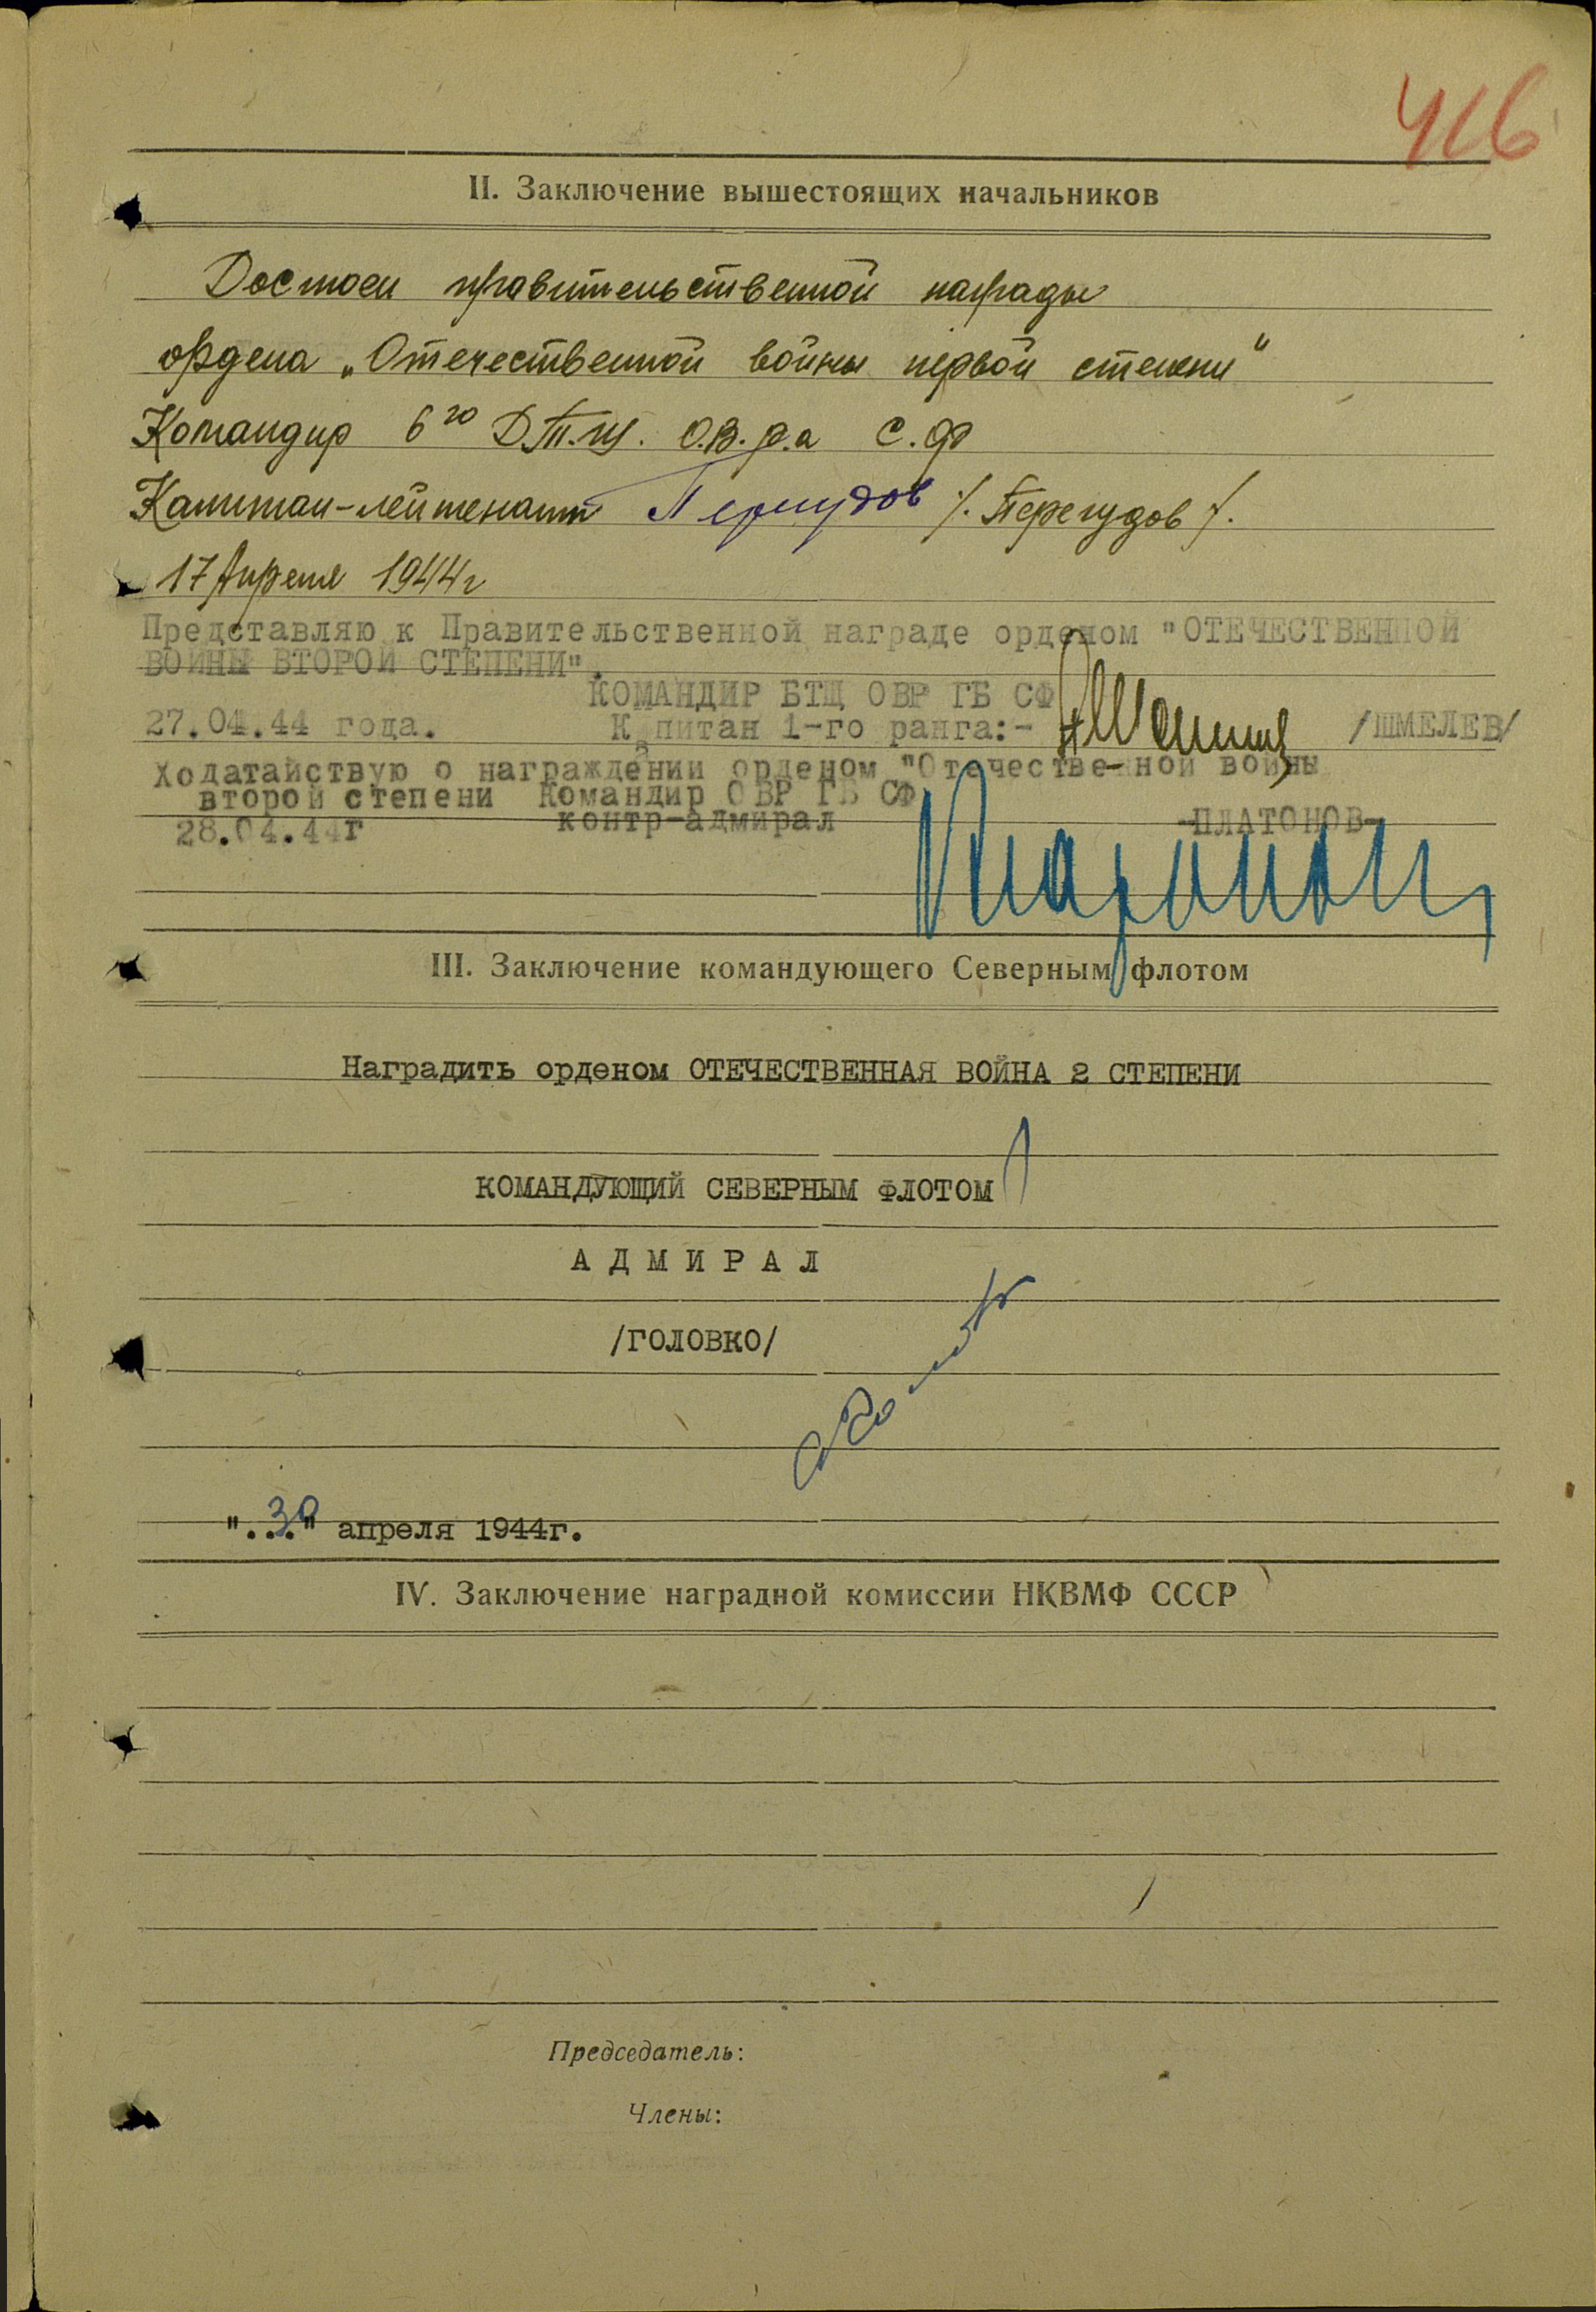 416
II. Заключение вышестоящих начальников
Достоен правительственной награды
ордена „Отечественной войны первой степени"
Командир 6го Д.Т.Щ. О.В.Р.а С.Ф
Капитан-лейтенант Перегудов /. Перегудов /.
17 Апреля 1944г
Представляю к Правительственной награде орденом "ОТЕЧЕСТВЕННОЙ
ВОЙНЫ ВТОРОЙ СТЕПЕНИ".
КОМАНДИР БТЩ ОВР ГБ СФ
27.04.44 года. Капитан 1-го ранга:- /ШМЕЛЕВ/
Ходатайствую о награждении орденом "Отечестве-нной войны
второй степени Командир ОВР ГБ СФ
28.04.44г контр-адмирал -ПЛАТОНОВ-
III. Заключение командующего Северным флотом
Наградить орденом ОТЕЧЕСТВЕННАЯ ВОЙНА 2 СТЕПЕНИ
КОМАНДУЮЩИЙ СЕВЕРНЫМ ФЛОТОМ
А Д М И Р А Л
/ГОЛОВКО/
".30." апреля 1944г.
IV. Заключение наградной комиссии НКВМФ СССР
Председатель:
Члены: